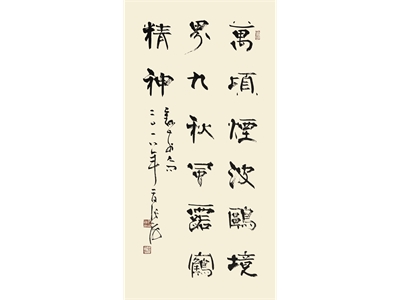 萬頃煙波鷗境
界九秋風露鶴
精神
二〇一八年